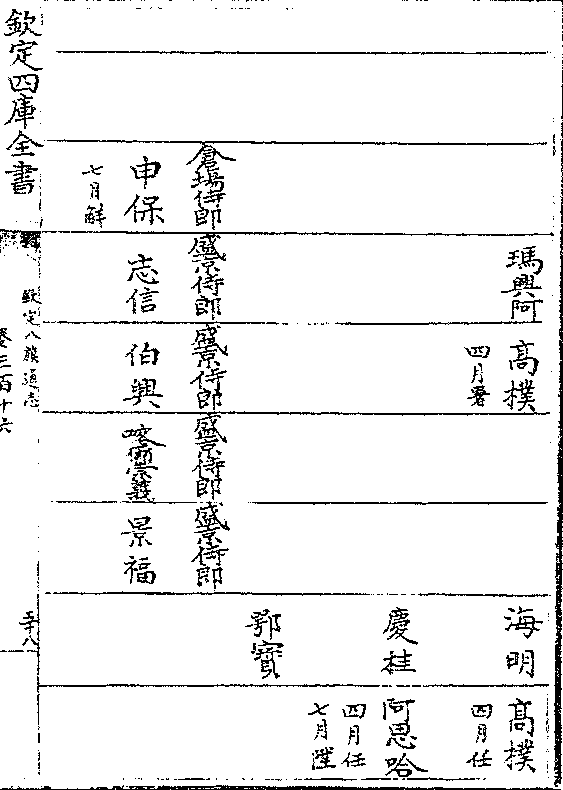 瑪興阿
高樸
四月署
海明
高樸
四月任
慶桂
阿思哈
四月任
七月陞
鄂寶
倉場侍郎
盛京侍郎
盛京侍郎
盛京侍郎
盛京侍郎
申保
七月觧
志信
伯興
喀爾崇義
景福
欽定四庫全書
欽定八旗通志
卷三百十六
五十八